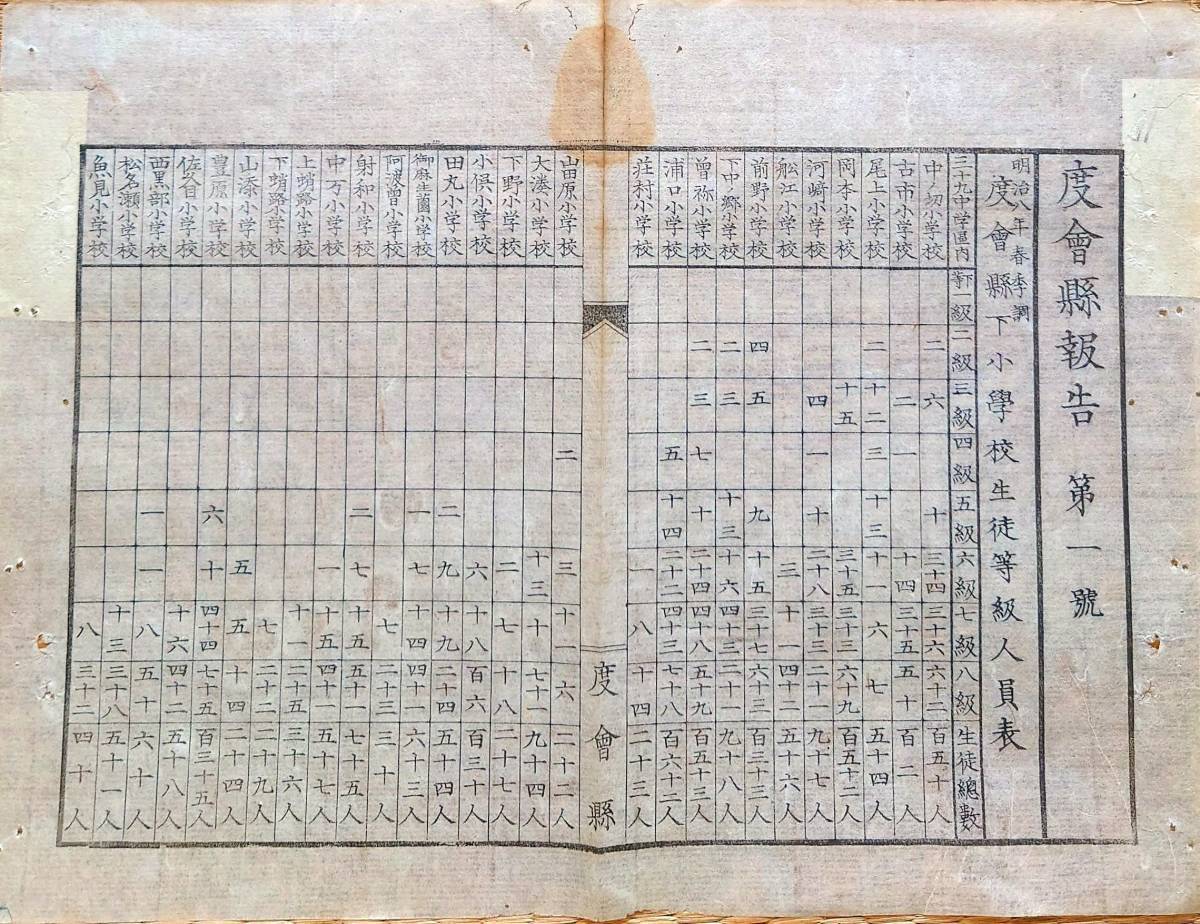 度會縣報告 第一號
明治八年春季調
度會縣下小學校生徒等級人員表
三十九中学區内 下等一級 二級 三級 四級 五級 六級 七級 八級 生徒總數
中ノ切小学校 二 六 十 三十四 三十六 六十二 百五十人
古市小学校 二 一 十四 三十五 五十 百二人
尾上小学校 二 十二 三 十三 十一 六 七 五十四人
岡本小学校 十五 三十五 三十三 六十九 百五十二人
河﨑小学校 四 一 十 二十八 三十三 二十一 九十七人
舩江小学校 三 十一 四十二 五十六人
前野小学校 四 五 九 十五 三十七 六十三 百三十三人
下中ノ郷小学校 二 三 十三 十六 四十三 二十一 九十八人
曽祢小学校 二 三 七 十 二十四 四十八 五十九 百五十三人
浦口小学校 五 十四 二十二 四十三 七十八 百六十二人
荘村小学校 一 八 十四 二十三人
度會縣
山田原小学校 二 三 十一 六 二十二人
大湊小学校 十三 十 七十一 九十四人
下野小学校 二 七 十八 二十七人
小俣小学校 六 十八 百六 百三十人
田丸小学校 二 九 十九 二十四 五十四人
御麻生薗小学校 一 七 十四 四十一 六十三人
阿波曽小学校 七 二十三 三十人
射和小学校 二 七 十五 五十一 七十五人
中万小学校 一 十五 四十一 五十七人
上蛸路小学校 十一 二十五 三十六人
下蛸路小学校 七 二十二 二十九人
山添小学校 五 五 十四 二十四人
豊原小学校 六 十 四十四 七十五 百三十五人
佐久目小学校 十六 四十二 五十八人
西黒部小学校 一 一 八 五十 六十人
松名瀬小学校 十三 三十八 五十一人
魚見小学校 八 三十二 四十人